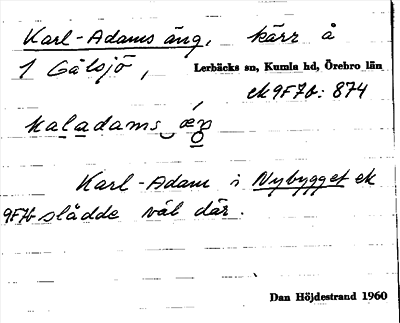 Karl-Adams äng, kärr å
1 Gålsjö,
Lerbäcks sn, Kumla hd, Örebro län
ek 9F7b: 874
kaladams æŋ
Karl-Adam i Nybygget ek
9F7b slådde väl där.
Dan Höjdestrand 1960